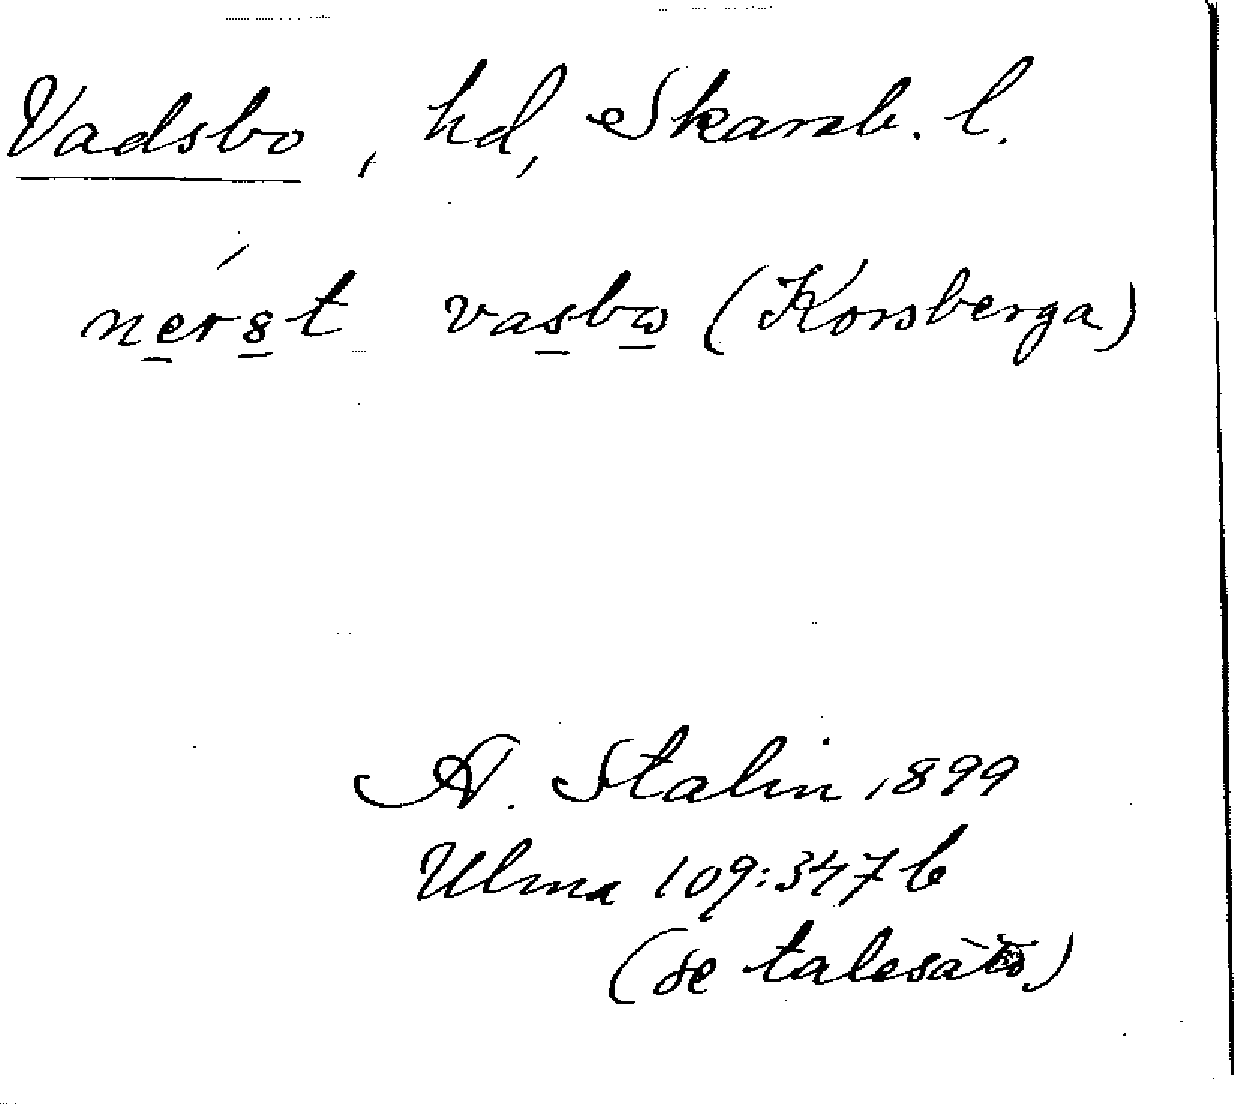 Vadsbo, hd, Skarab. l.
nerst vasbω (Korsberga)
A. Stalin 1899
Ulma 109:347b
(se talesätt)